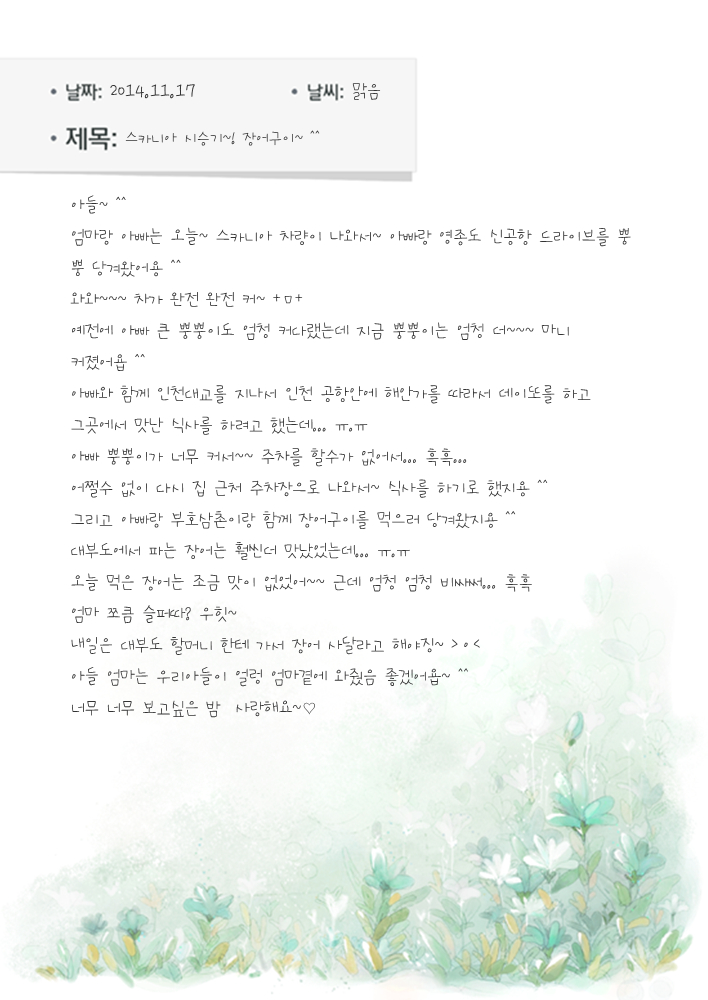 • 날짜: 2014.11.17 • 날씨: 맑음
• 제목: 스카니아 시승기~! 장어구이~ ^^
아들~ ^^
엄마랑 아빠는 오늘~ 스카니아 차량이 나와서~ 아빠랑 영종도 신공항 드라이브를 뿡
뿡 당겨왔어용 ^^
와와~~~ 차가 완전 완전 커~ +ㅁ+
예전에 아빠 큰 뿡뿡이도 엄청 커다랬는데 지금 뿡뿡이는 엄청 더~~~ 마니
커졌어욥 ^^
아빠와 함께 인천대교를 지나서 인천 공항안에 해안가를 따라서 데이또를 하고
그곳에서 맛난 식사를 하려고 했는데... ㅠ.ㅠ
아빠 뿡뿡이가 너무 커서~~ 주차를 할수가 없어서... 흑흑...
어쩔수 없이 다시 집 근처 주차장으로 나와서~ 식사를 하기로 했지용 ^^
그리고 아빠랑 부호삼촌이랑 함께 장어구이를 먹으러 당겨왔지용 ^^
대부도에서 파는 장어는 훨씬더 맛났었는데... ㅠ.ㅠ
오늘 먹은 장어는 조금 맛이 없었어~~ 근데 엄청 엄청 비싸써... 흑흑
엄마 쪼큼 슬퍼따? 우힛~
내일은 대부도 할머니 한테 가서 장어 사달라고 해야징~ >ㅇ<
아들 엄마는 우리아들이 얼렁 엄마곁에 와줬음 좋겠어욥~ ^^
너무 너무 보고싶은 밤 사랑해요~♡